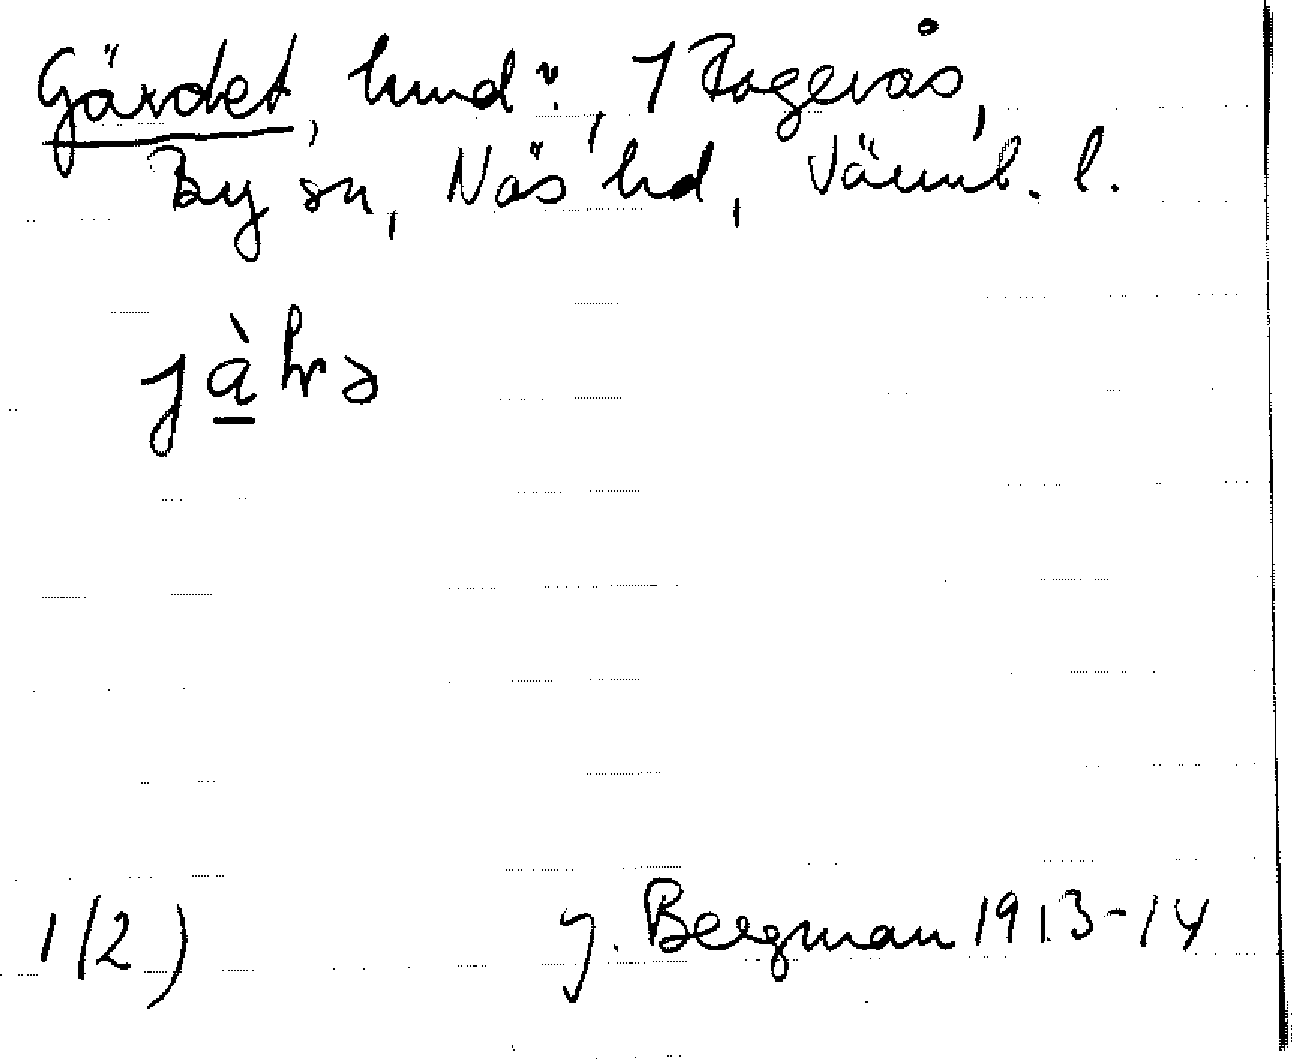 Gärdet, hmd:, 1 Rogerås,
By sn, Näs hd, Värml. l.
1(2) J. Bergman 1913-14